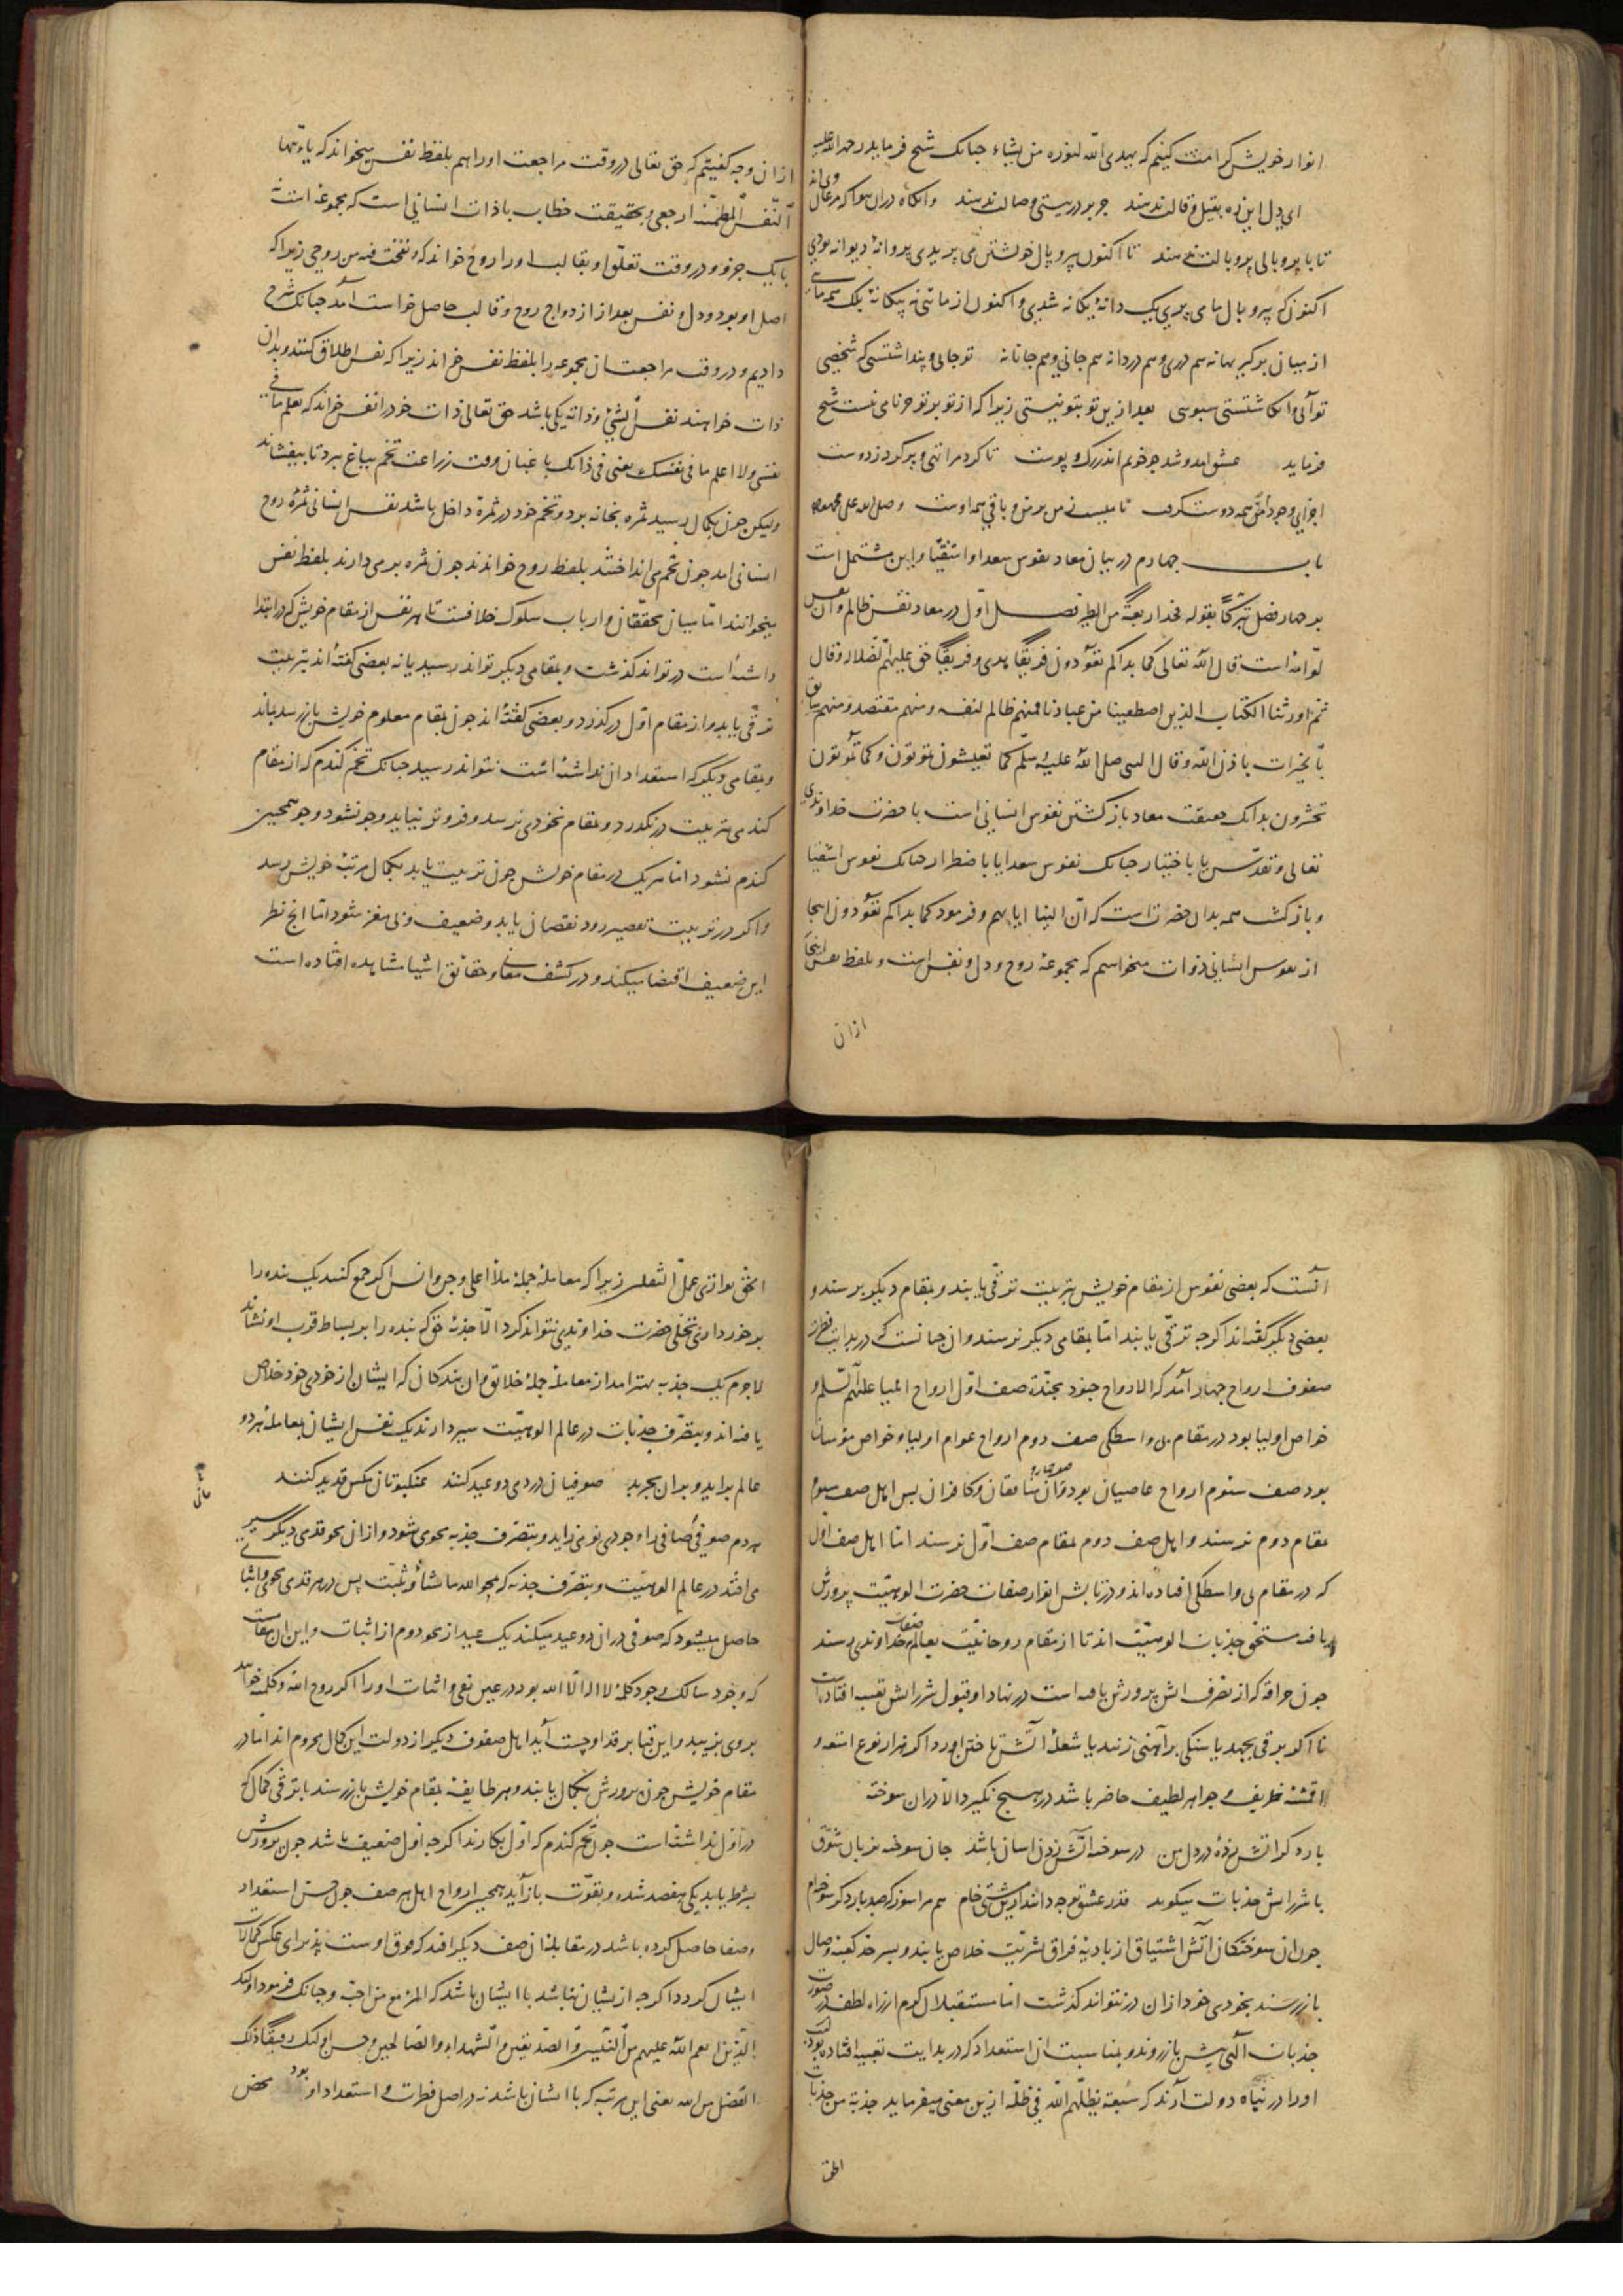 انوار خویش کرامت کنیم که یهدی الله لنوره من یشاء جنانک شیخ فرماید رحمة الله علیه
ای دل این ره بقیل و قالت ندهند جز بر در نیستی وصالت ندهند وانکاه دران هوا که مرغان وی اند
تا با پر و بالی پر و بالت ندهند تا اکنون بپر و بال خویشتن می پریدی پروانه دیوانه بودی
اکنون که بپر و بال ما می پری یک دانه یکانه شدی و اکنون از مائی نه بیکانه یک همه مایی
از میان برکیر بهانه هم دری و هم دردانه هم جانی و هم جانانه تو جانی و پنداشتستی که شخصی
تو آبی و انکاشتستی سبویی بعد ازین تو بتو نیستی زیرا که از تو بر تو جز نامی نیست شیخ
فرماید عشق امد و شد جو خونم اندر رک و پوست تا کرد مرا تهی و پر کرد ز دوست
اجزای وجود من همه دوست کرفت نامیست ز من بر من و باقی همه اوست وصلی الله علی محمد و آله
باب چهارم در بیان معاد نفوس سعدا و اشقیا و این مشتمل است
بر چهار فصل تبرکا بقوله فخذ اربعة من الطیر فصل اول در معاد نفس ظالم و آن نفس
لوامه است قال الله تعالی کما بداکم تعودون فریقا هدی و فریقا حق علیهم الضلالة و قال
ثم اورثنا الکتاب الذین اصطفینا من عبادنا فمنهم ظالم لنفسه و منهم مقتصد و منهم سابق
بالخیرات باذن الله و قال النبی صلی الله علیه و سلم کما تعیشون تموتون و کما تموتون
تحشرون بدانک حقیقت معاد بازکشتن نفوس انسانی است با حضرت خداوندی
تعالی و تقدس یا باختیار جنانک نفوس سعدا یا باضطرار جنانک نفوس اشقیا
و بازکشت همه بدان حضرت است که ان الینا ایابهم و فرمود کما بداکم تعودون اینجا
از نفوس انسانی ذوات میخواهیم که مجموعه روح و دل و نفس است و بلفظ نفس اینجا
ازان
ازان وجه کفتیم که حق تعالی در وقت مراجعت او را هم بلفظ نفس میخواند که یا ایتها
النفس المطمئنة ارجعی و بحقیقت خطاب با ذات انسانی است که مجموعه است نه
با یک جزو و در وقت تعلق او بقالب او را روح خواند که و نفخت فیه من روحی زیرا که
اصل او بود و دل و نفس بعد از ازدواج روح و قالب حاصل خواست آمد جنانک شرح
دادیم و در وقت مراجعت ان مجموعه را بلفظ نفس خواند زیرا که نفس اطلاق کنند و بدان
ذات خواهند نفس الشیء و ذاته یکی باشد حق تعالی ذات خود را نفس خواند که تعلم ما فی
نفسی و لا اعلم ما فی نفسک یعنی فی ذاتک باغبان وقت زراعت تخم بباغ برد تا بیفشاند
ولیکن جون بکمال رسید ثمره بخانه برد و تخم خود در ثمره داخل باشد نفس انسانی ثمرۀ روح
انسانی امد جون تخم می انداختند بلفظ روح خواندند جون ثمره بر می دارند بلفظ نفس
میخوانند اما میان محققان و ارباب سلوک خلافست تا هر نفس از مقام خویش که در ابتدا
داشته است در تواند کذشت و بمقامی دیکر تواند رسید یا نه بعضی کفته اند بتربیت
ترقی یابد و از مقام اول درکذرد و بعضی کفته اند جون بمقام معلوم خویش باز رسد بماند
و بمقامی دیکر که استعداد ان نداشته است نتواند رسید جنانک تخم کندم که از مقام
کندمی بتربیت درنکذرد و بمقام نخودی نرسد و فروتر نیاید و جو نشود و جو همجنین
کندم نشود اما هر یک در مقام خویش جون تربیت یابد بکمال مرتبه خویش رسد
و اکر در تربیت تقصیر رود نقصان یابد و ضعیف و بی مغز شود اما انج نظر
این ضعیف اقتضا میکند و در کشف معانی و حقائق اشیا مشاهده افتاده است
آنست که بعضی نفوس از مقام خویش بتربیت ترقی یابند و بمقام دیکر برسند و
بعضی دیکر کفته اند اکرجه ترقی یابند اما بمقامی دیکر نرسند و ان جنانست که در بدایت فطرت
صفوف ارواح جهار آمد که الارواح جنود مجندة صف اول ارواح انبیا علیهم السلم و
خواص اولیا بود در مقام بی واسطکی صف دوم ارواح عوام اولیا و خواص مؤمنان
بود صف سیوم ارواح عاصیان بود صف جهارم وان منافقان و کافران پس اهل صف سیوم
بمقام دوم نرسند و اهل صف دوم بمقام صف اول نرسند اما اهل صف اول
که در مقام بی واسطکی افتاده اند و در تابش انوار صفات حضرت الوهیت پرورش
یافته مستحق جذبات الوهیت اند تا از مقام روحانیت بعالم صفات خداوندی رسند
جون حراقه که از تصرف اتش پرورش یافته است در نهاد او قبول شرر اتش تعبیه افتادست
تا اکر برقی بجهد یا سنکی بر آهنی زنند یا شعلۀ آتش تاختن اورد اکر هزار نوع امتعه و
اقمشه ظریف و جواهر لطیف حاضر باشد در هیج نکیرد الا دران سوخته
بار دکر اتش زدۀ در دل من در سوخته آتش زدن اسان باشد جان سوخته بزبان شوق
با شرر اتش جذبات میکوید قدر عشق تو جه دانند ازین مشتی خام هم مرا سوز که صد بار دکر سوخته ام
جون ان سوختکان آتش اشتیاق از بادیه فراق بشریت خلاص یابند و بسر حد کعبۀ وصال
باز رسند بخودی خود ازان در نتوانند کذشت اما مستقبلان کرم از راه لطف در صورت
جذبات الهی پیش باز روند و بمناسبت ان استعداد که در بدایت تعبیه افتاده بود
او را در پناه دولت آرند که سبعة یظلهم الله فی ظله ازین معنی میفرماید جذبة من جذبات
الحق
الحق توازی عمل الثقلین زیرا که معاملۀ جملۀ ملأ اعلی و جن و انس اکر جمع کنند یک بنده را
برخورداری تجلی حضرت خداوندی نتواند کرد الا جذبۀ حق که بنده را بر بساط قرب او نشاند
لاجرم یک جذبه بهتر امد از معاملۀ جملۀ خلائق و ان بندکان که ایشان از خودی خود خلاص
یافته اند و بتصرف جذبات در عالم الوهیت سیر دارند یک نفس ایشان بمعاملۀ هر دو
عالم براید و بران بجربد صوفیان در دمی دو عید کنند عنکبوتان مکس قدید کنند
هر دم صوفی صافی را وجودی نو می زاید و بتصرف جذبه محوی شود و ازان محو قدمی دیکر سیرش
می افتد در عالم الوهیت و بتصرف جذبه که یمحوا الله ما یشاء و یثبت پس در هر قدمی محوی و اثباتی
حاصل میشود که صوفی دران دو عید میکند یک عید از محو دوم از اثبات و این ان مقامست
که وجود سالک وجود کلمۀ لا اله الا الله بود در عین نفی و اثبات او را اکر روح الله و کلمه خوانند
بروی بزیبد و این قبا بر قد او جست آید اهل صفوف دیکر از دولت این کمال محروم اند اما در
مقام خویش جون پرورش بکمال یابند و هر طایفه بمقام خویش باز رسند با ترقی کمالی که
در اول نداشته است جون تخم کندم که اول بکارند اکرجه اول ضعیف باشد جون پرورش
بشرط یابد یکی هفتصد شده و بقوت باز آید همجنین ارواح اهل هر صف جون حسن استعداد
و صفا حاصل کرده باشد در مقابلۀ ان صف دیکر افتد که فوق اوست پذیرای عکس کمالات
ایشان کردد اکرجه از یشان نباشد با ایشان باشد که المرء مع من احب و جنانک فرمود اولئک
الذین انعم الله علیهم من النبیین و الصدیقین و الشهداء و الصالحین و حسن اولئک رفیقا ذلک
الفضل من الله یعنی این مرتبه که با ایشان باشد نه در اصل فطرت و استعداد او بود محض